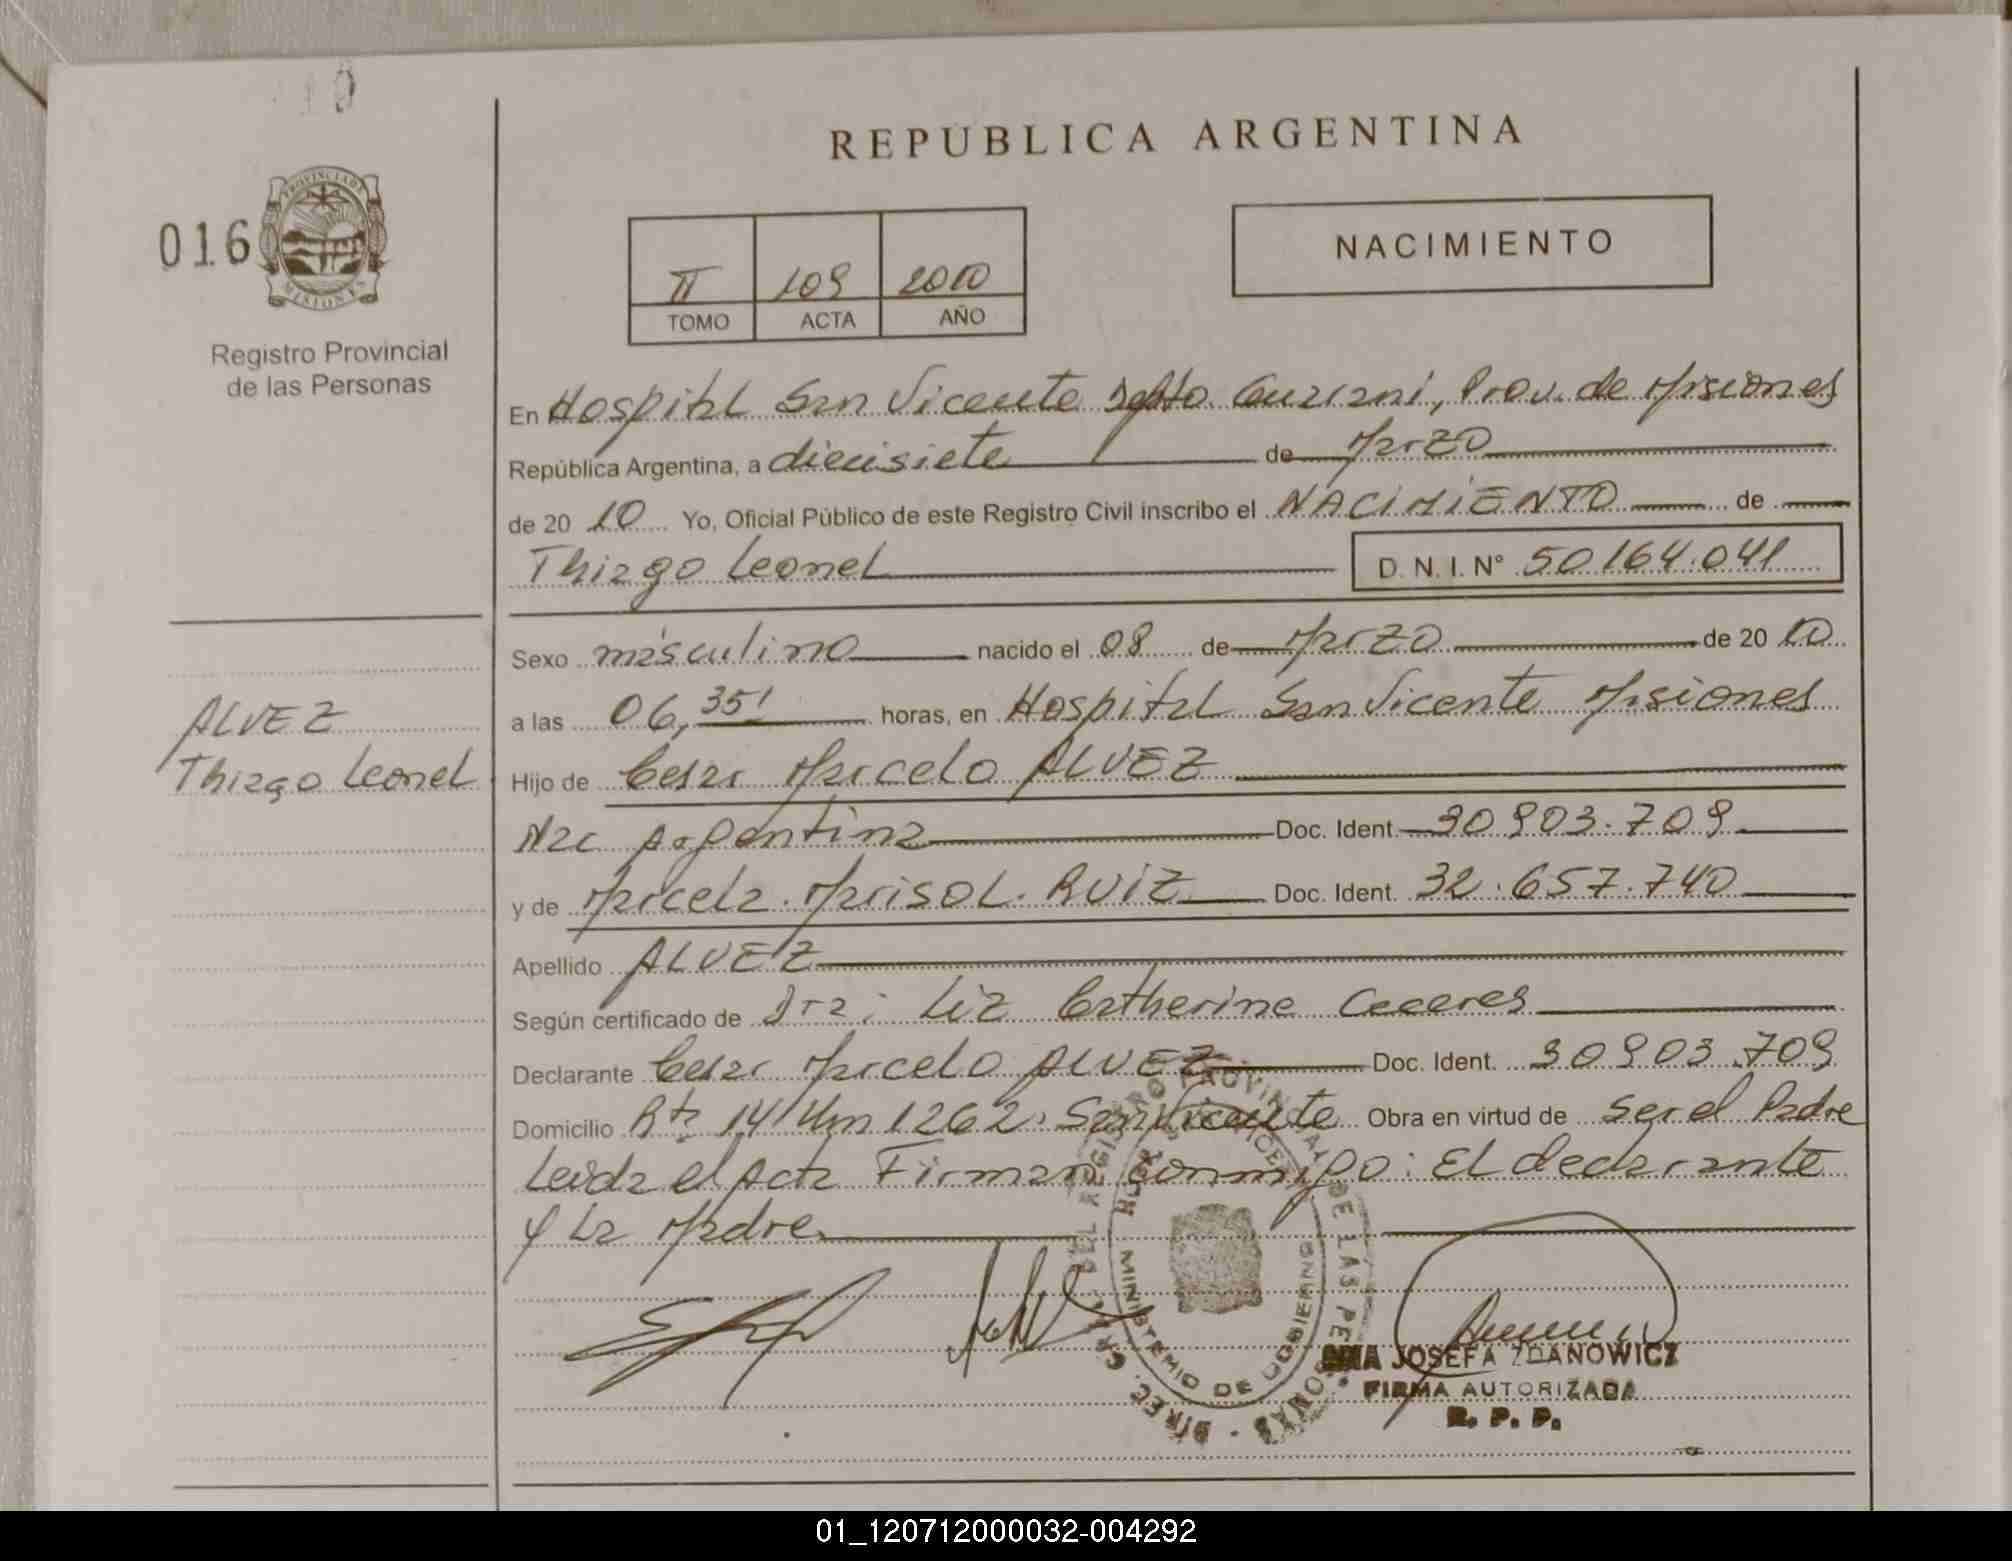 REPUBLICA ARGENTINA
016
PROVINCIA DE
MISIONES
Registro Provincial
de las Personas
II 109 2010
TOMO ACTA AÑO
NACIMIENTO
En Hospital San Vicente Dpto. Guarani, Prov. de Misiones
República Argentina, a diecisiete de Marzo
de 20 10 Yo, Oficial Público de este Registro Civil inscribo el NACIMIENTO de
Thiago Leonel D. N. I. N° 50164.041
Sexo masculino nacido el 08 de Marzo de 20 10
a las 06,35' horas, en Hospital San Vicente Misiones
ALVEZ
Thiago Leonel
Hijo de Cesar Marcelo ALVEZ
Nac Argentina Doc. Ident. 30903.709
y de Marcela Marisol RUIZ Doc. Ident. 32.657.740
Apellido ALVEZ
Según certificado de Dra: Liz Catherine Caceres
Declarante Cesar Marcelo ALVEZ Doc. Ident. 30903.709
Domicilio Rta 14 Km 1262. San Vicente Obra en virtud de ser el Padre
Leida el Acta Firman conmigo: El declarante
y La Madre
DIREC. GRAL. DEL REGISTRO PROVINCIAL DE LAS PERSONAS
MINISTERIO DE GOBIERNO
JOSEFA ZDANOWICZ
FIRMA AUTORIZADA
R. P. P.
01_120712000032-004292